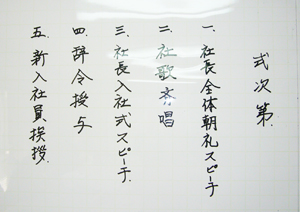 式次第
一、社長全体朝礼スピーチ
二、社歌斉唱
三、社長入社式スピーチ
四、辞令授与
五、新入社員挨拶